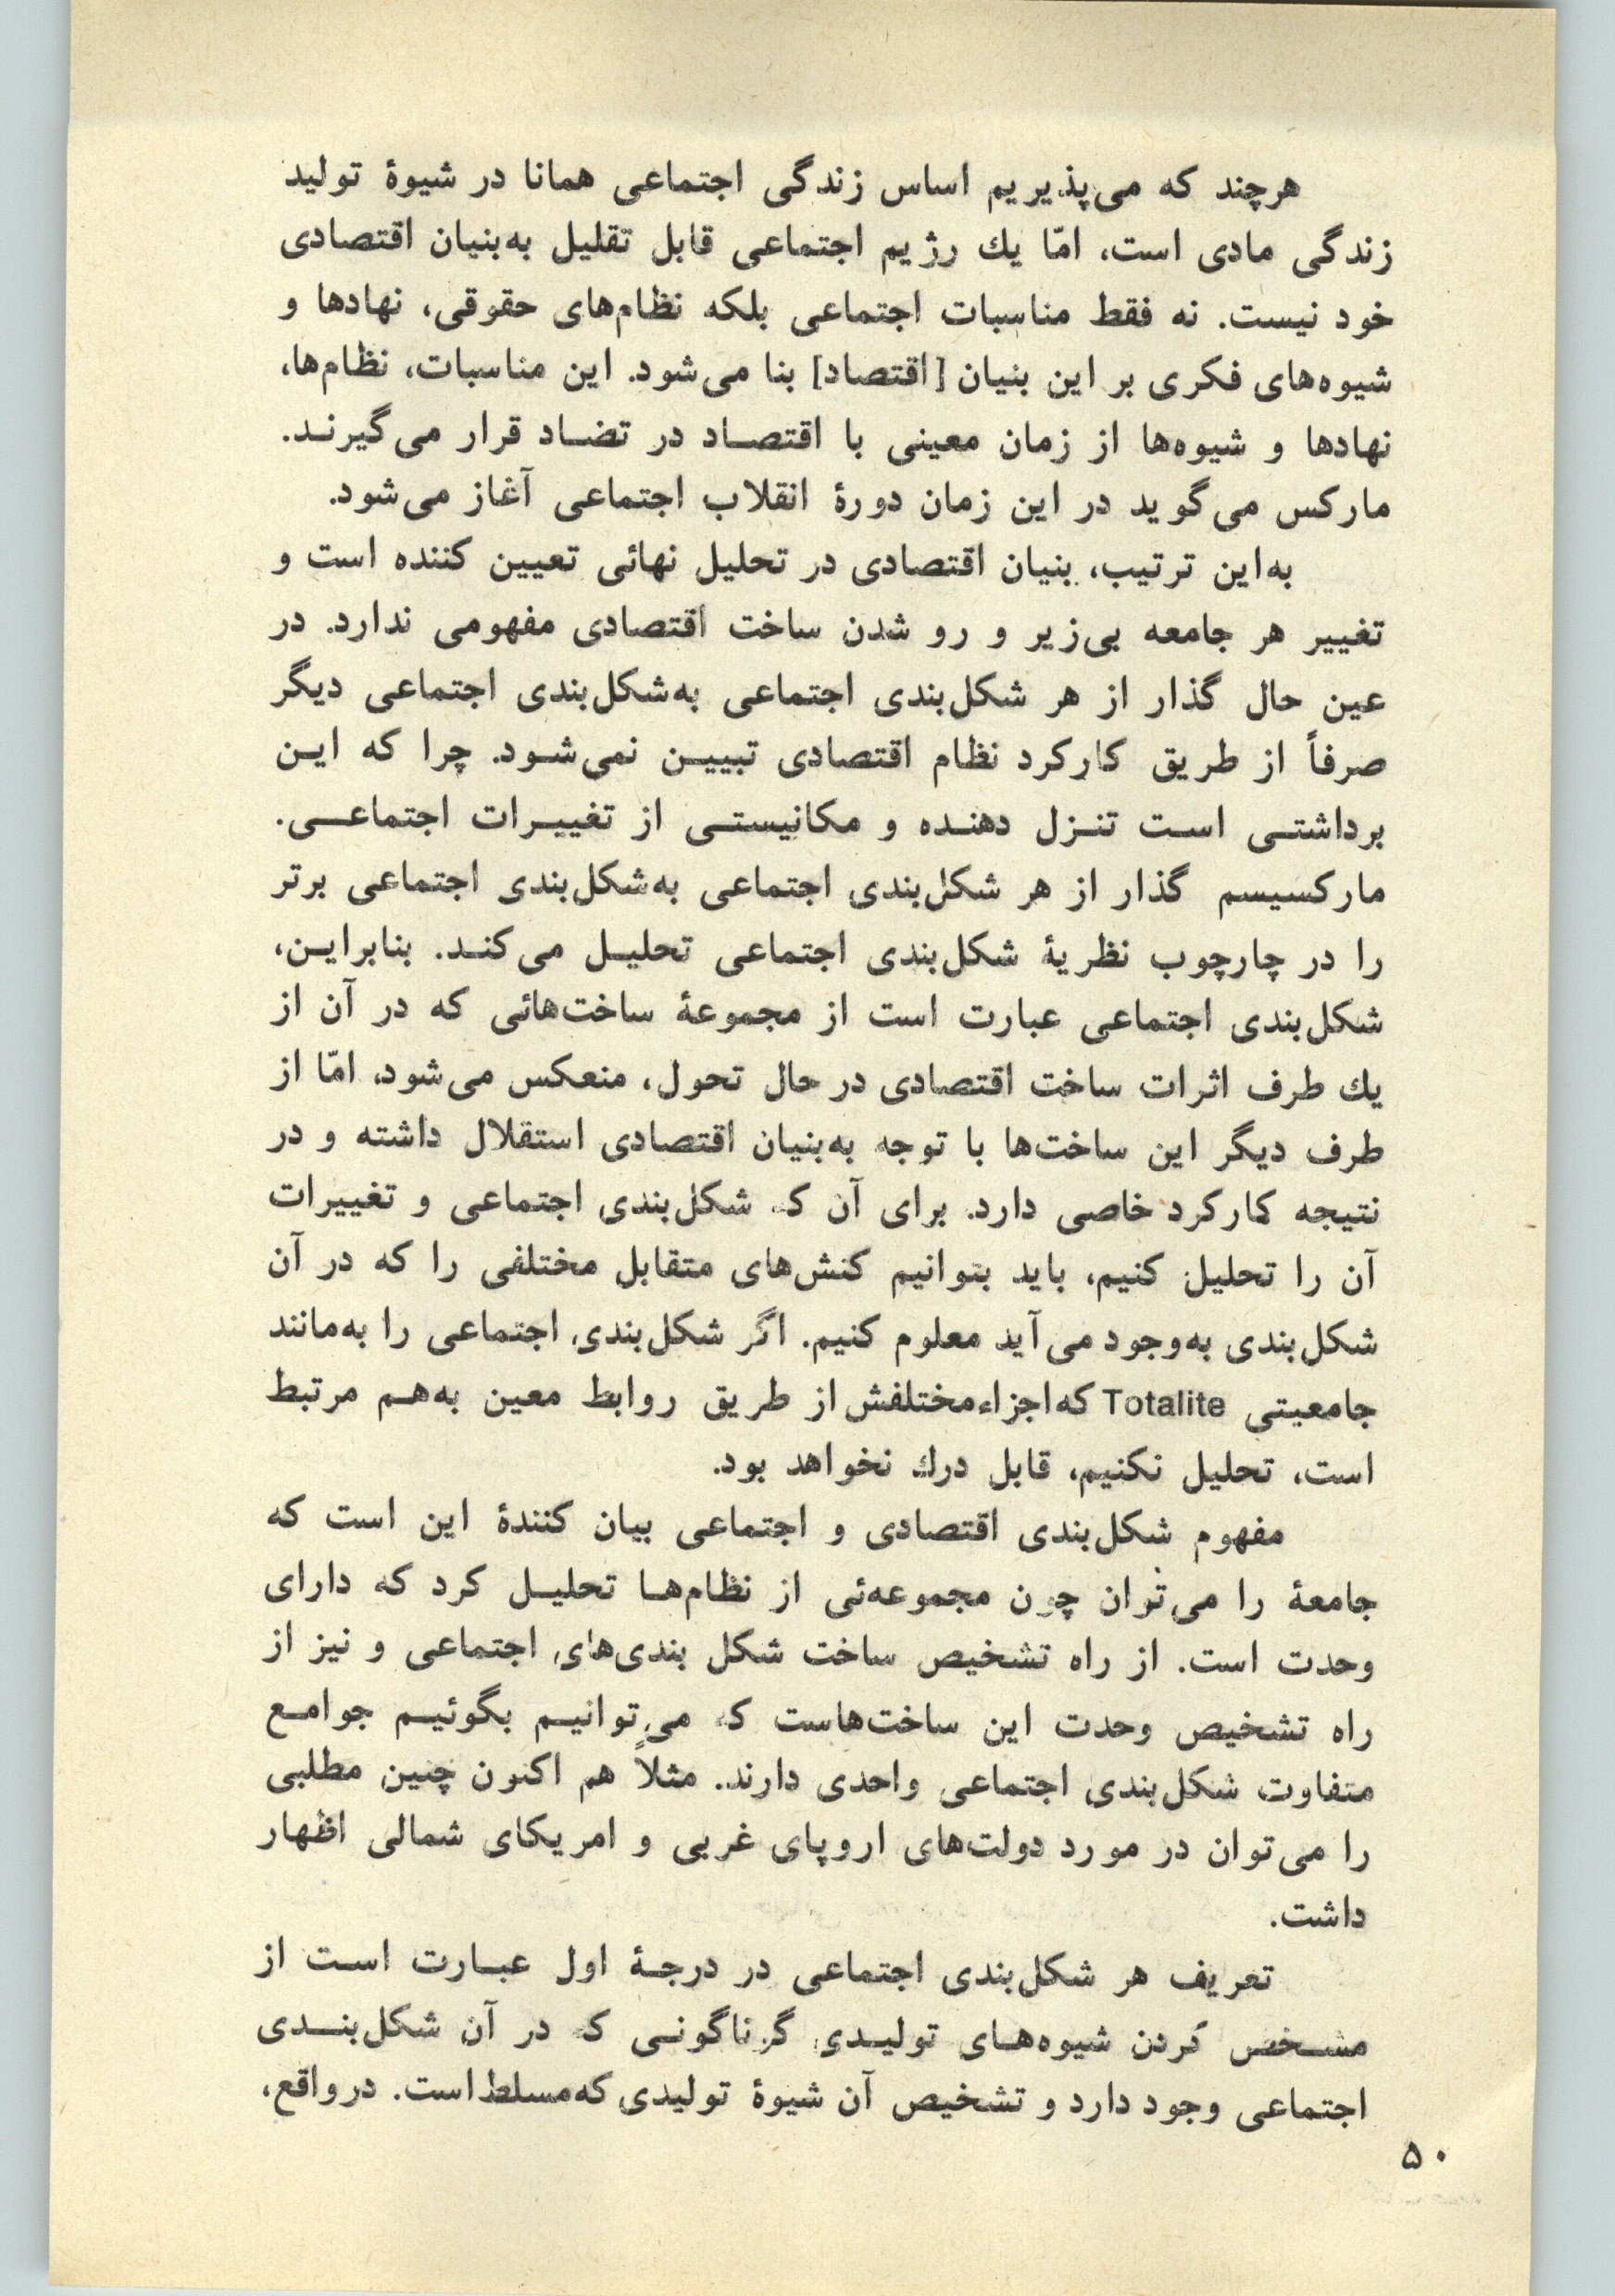 هرچند که می‌پذیریم اساس زندگی اجتماعی همانا در شیوهٔ تولید
زندگی مادی است، امّا یك رژیم اجتماعی قابل تقلیل به‌بنیان اقتصادی
خود نیست. نه فقط مناسبات اجتماعی بلکه نظام‌های حقوقی، نهادها و
شیوه‌های فکری بر این بنیان [اقتصاد] بنا می‌شود. این مناسبات، نظام‌ها،
نهادها و شیوه‌ها از زمان معینی با اقتصـاد در تضـاد قرار می‌گیرنـد.
مارکس می‌گوید در این زمان دورهٔ انقلاب اجتماعی آغاز می‌شود.
به‌این ترتیب، بنیان اقتصادی در تحلیل نهائی تعیین کننده است و
تغییر هر جامعه بی‌زیر و رو شدن ساخت اقتصادی مفهومی ندارد. در
عین حال گذار از هر شکل‌بندی اجتماعی به‌شکل‌بندی اجتماعی دیگر
صرفاً از طریق کارکرد نظام اقتصادی تبییـن نمی‌شـود. چرا که ایـن
برداشتـی اسـت تنـزل دهنـده و مکانیستـی از تغییـرات اجتماعـی.
مارکسیسم گذار از هر شکل‌بندی اجتماعی به‌شکل‌بندی اجتماعی برتر
را در چارچوب نظریهٔ شکل‌بندی اجتماعی تحلیـل می‌کنـد. بنابرایـن،
شکل‌بندی اجتماعی عبارت است از مجموعهٔ ساخت‌هائی که در آن از
یك طرف اثرات ساخت اقتصادی در حال تحول، منعکس می‌شود، امّا از
طرف دیگر این ساخت‌ها با توجه به‌بنیان اقتصادی استقلال داشته و در
نتیجه کارکرد خاصی دارد. برای آن که شکل‌بندی اجتماعی و تغییرات
آن را تحلیل کنیم، باید بتوانیم کنش‌های متقابل مختلفی را که در آن
شکل‌بندی به‌وجود می‌آید معلوم کنیم. اگر شکل‌بندی اجتماعی را به‌مانند
جامعیتی Totalite که اجزاء مختلفش از طریق روابط معین به‌هـم مرتبط
است، تحلیل نکنیم، قابل درك نخواهد بود.
مفهوم شکل‌بندی اقتصادی و اجتماعی بیان کنندهٔ این است که
جامعهٔ را می‌توان چون مجموعه‌ئی از نظام‌هـا تحلیـل کرد که دارای
وحدت است. از راه تشخیص ساخت شکل بندی‌های اجتماعی و نیز از
راه تشخیص وحدت این ساخت‌هاست که می‌توانیـم بگوئیـم جوامـع
متفاوت شکل‌بندی اجتماعی واحدی دارند. مثلاً هم اکنون چنین مطلبی
را می‌توان در مورد دولت‌های اروپای غربی و امریکای شمالی اظهار
داشت.
تعریف هر شکل‌بندی اجتماعی در درجـهٔ اول عبـارت اسـت از
مشـخص کردن شیوه‌هـای تولیـدی گوناگونـی که در آن شکل‌بنـدی
اجتماعی وجود دارد و تشخیص آن شیوهٔ تولیدی که مسلط است. در واقع،
۵۰